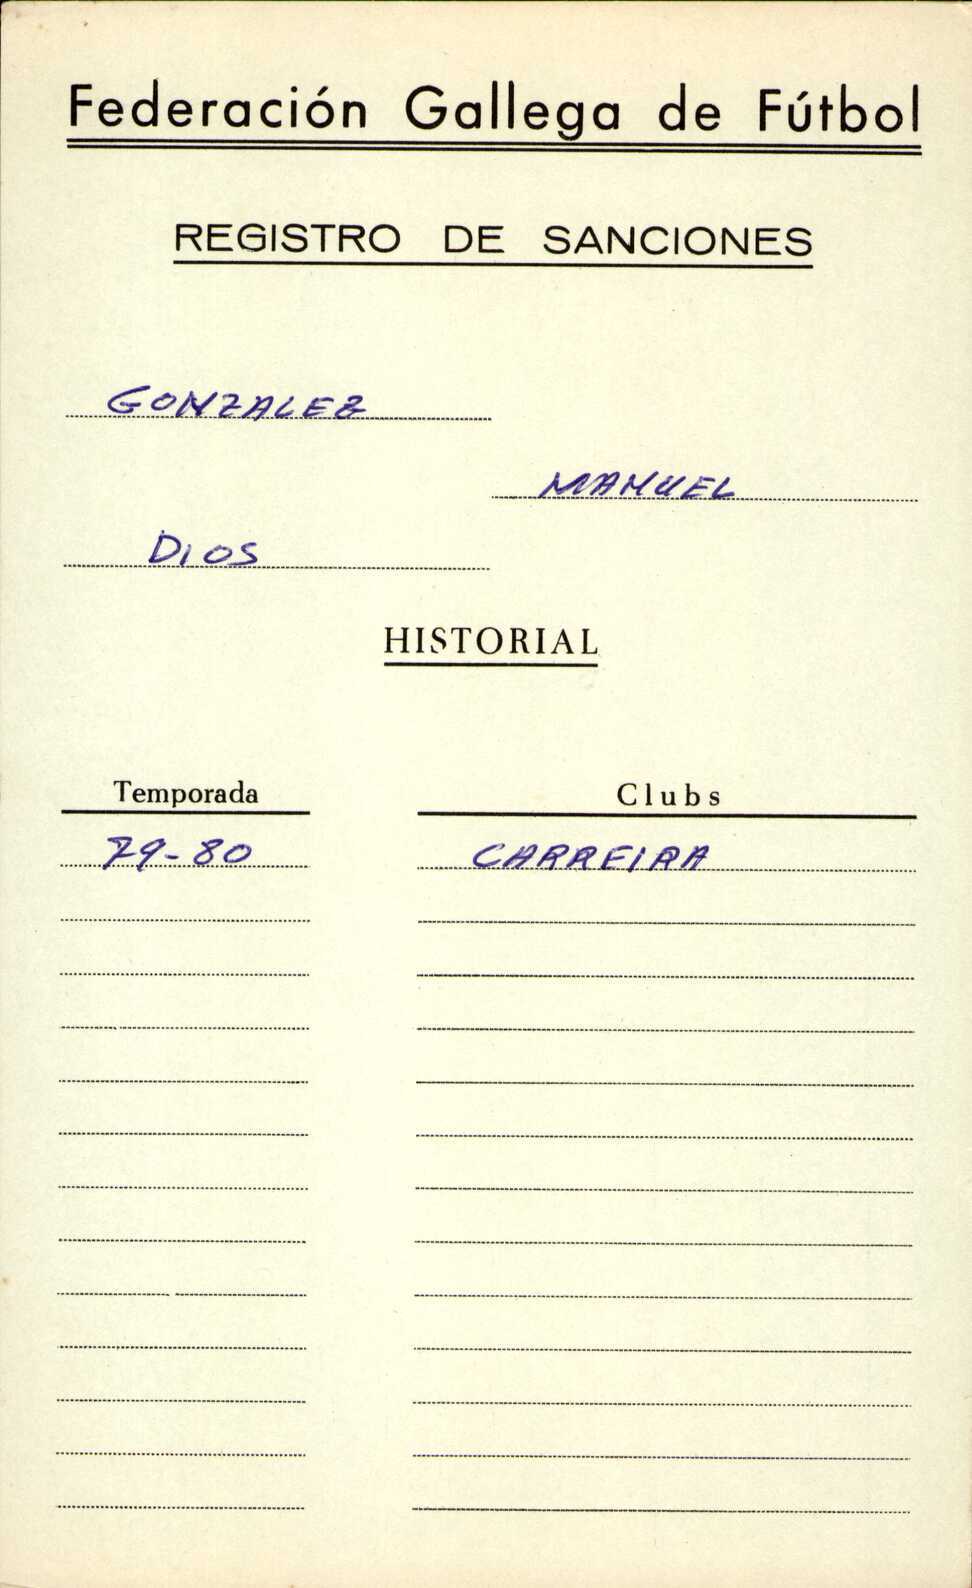 Federación Gallega de Fútbol
REGISTRO DE SANCIONES
GONZALEZ
MANUEL
DIOS
HISTORIAL
Temporada Clubs
79-80 CARREIRA